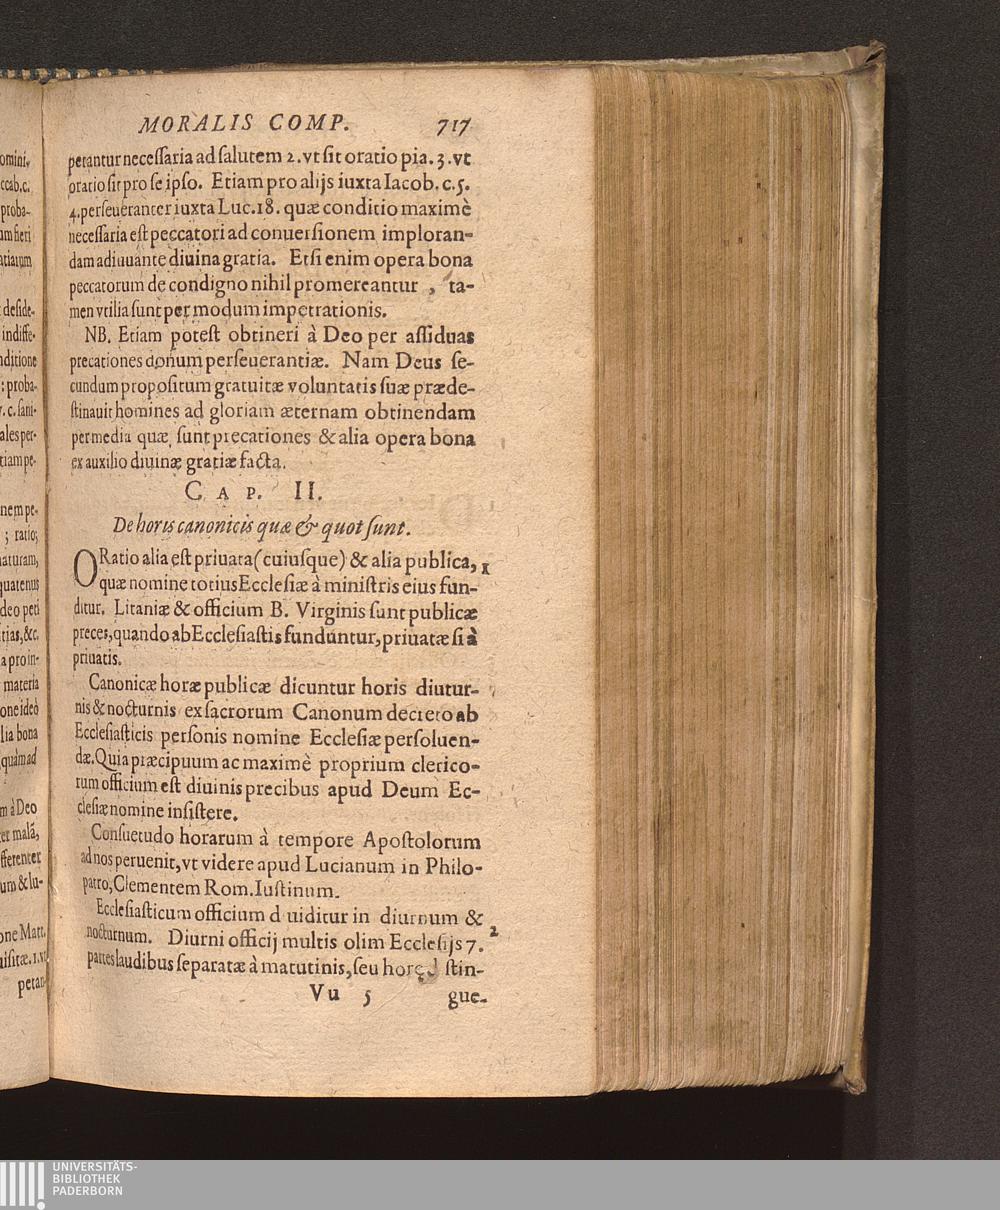 MORALIS COMP. 717
petantur necessaria ad salutem 2. vt sit oratio pia. 3. vt
oratio sit pro se ipso. Etiam pro alijs iuxta Iacob. c. 5.
4. perseueranter iuxta Luc. 18. quæ conditio maximè
necessaria est peccatori ad conuersionem imploran-
dam adiuuante diuina gratia. Etsi enim opera bona
peccatorum de condigno nihil promereantur, ta-
men vtilia sunt per modum impetrationis.
NB. Etiam potest obtineri à Deo per assiduas
precationes donum perseuerantiæ. Nam Deus se-
cundum propositum gratuitæ voluntatis suæ præde-
stinauit homines ad gloriam æternam obtinendam
per media quæ sunt precationes & alia opera bona
ex auxilio diuinæ gratiæ facta.
CAP. II.
De horis canonicis quæ & quot sunt.
ORatio alia est priuata (cuiusque) & alia publica, 1
quæ nomine totius Ecclesiæ à ministris eius fun-
ditur. Litaniæ & officium B. Virginis sunt publicæ
preces, quando ab Ecclesiastis funduntur, priuatæ si à
priuatis.
Canonicæ horæ publicæ dicuntur horis diutur-
nis & nocturnis ex sacrorum Canonum decreto ab
Ecclesiasticis personis nomine Ecclesiæ persoluen-
dæ. Quia præcipuum ac maximè proprium clerico-
rum officium est diuinis precibus apud Deum Ec-
clesiæ nomine insistere.
Consuetudo horarum à tempore Apostolorum
ad nos peruenit, vt videre apud Lucianum in Philo-
patro, Clementem Rom. Iustinum.
Ecclesiasticum officium diuiditur in diurnum &
nocturnum. Diurni officij multis olim Ecclesijs 7. 2
partes laudibus separatæ à matutinis, seu horę d stin-
Vu 5 gue-
omini,
ccab. c.
proba-
um fieri
atiarum
deside-
indiffe-
nditione
; proba-
. c. sani-
ales per-
tiam pe-
nem pe-
; ratio;
naturam,
quatenus
deo peti
tias, &c.
a pro in-
materia
one ideò
lia bona
quàm ad
m à Deo
er malã,
fferenter
um & lu-
one Matt.
uisitæ. 1. vt
petan-
UNIVERSITÄTS-
BIBLIOTHEK
PADERBORN